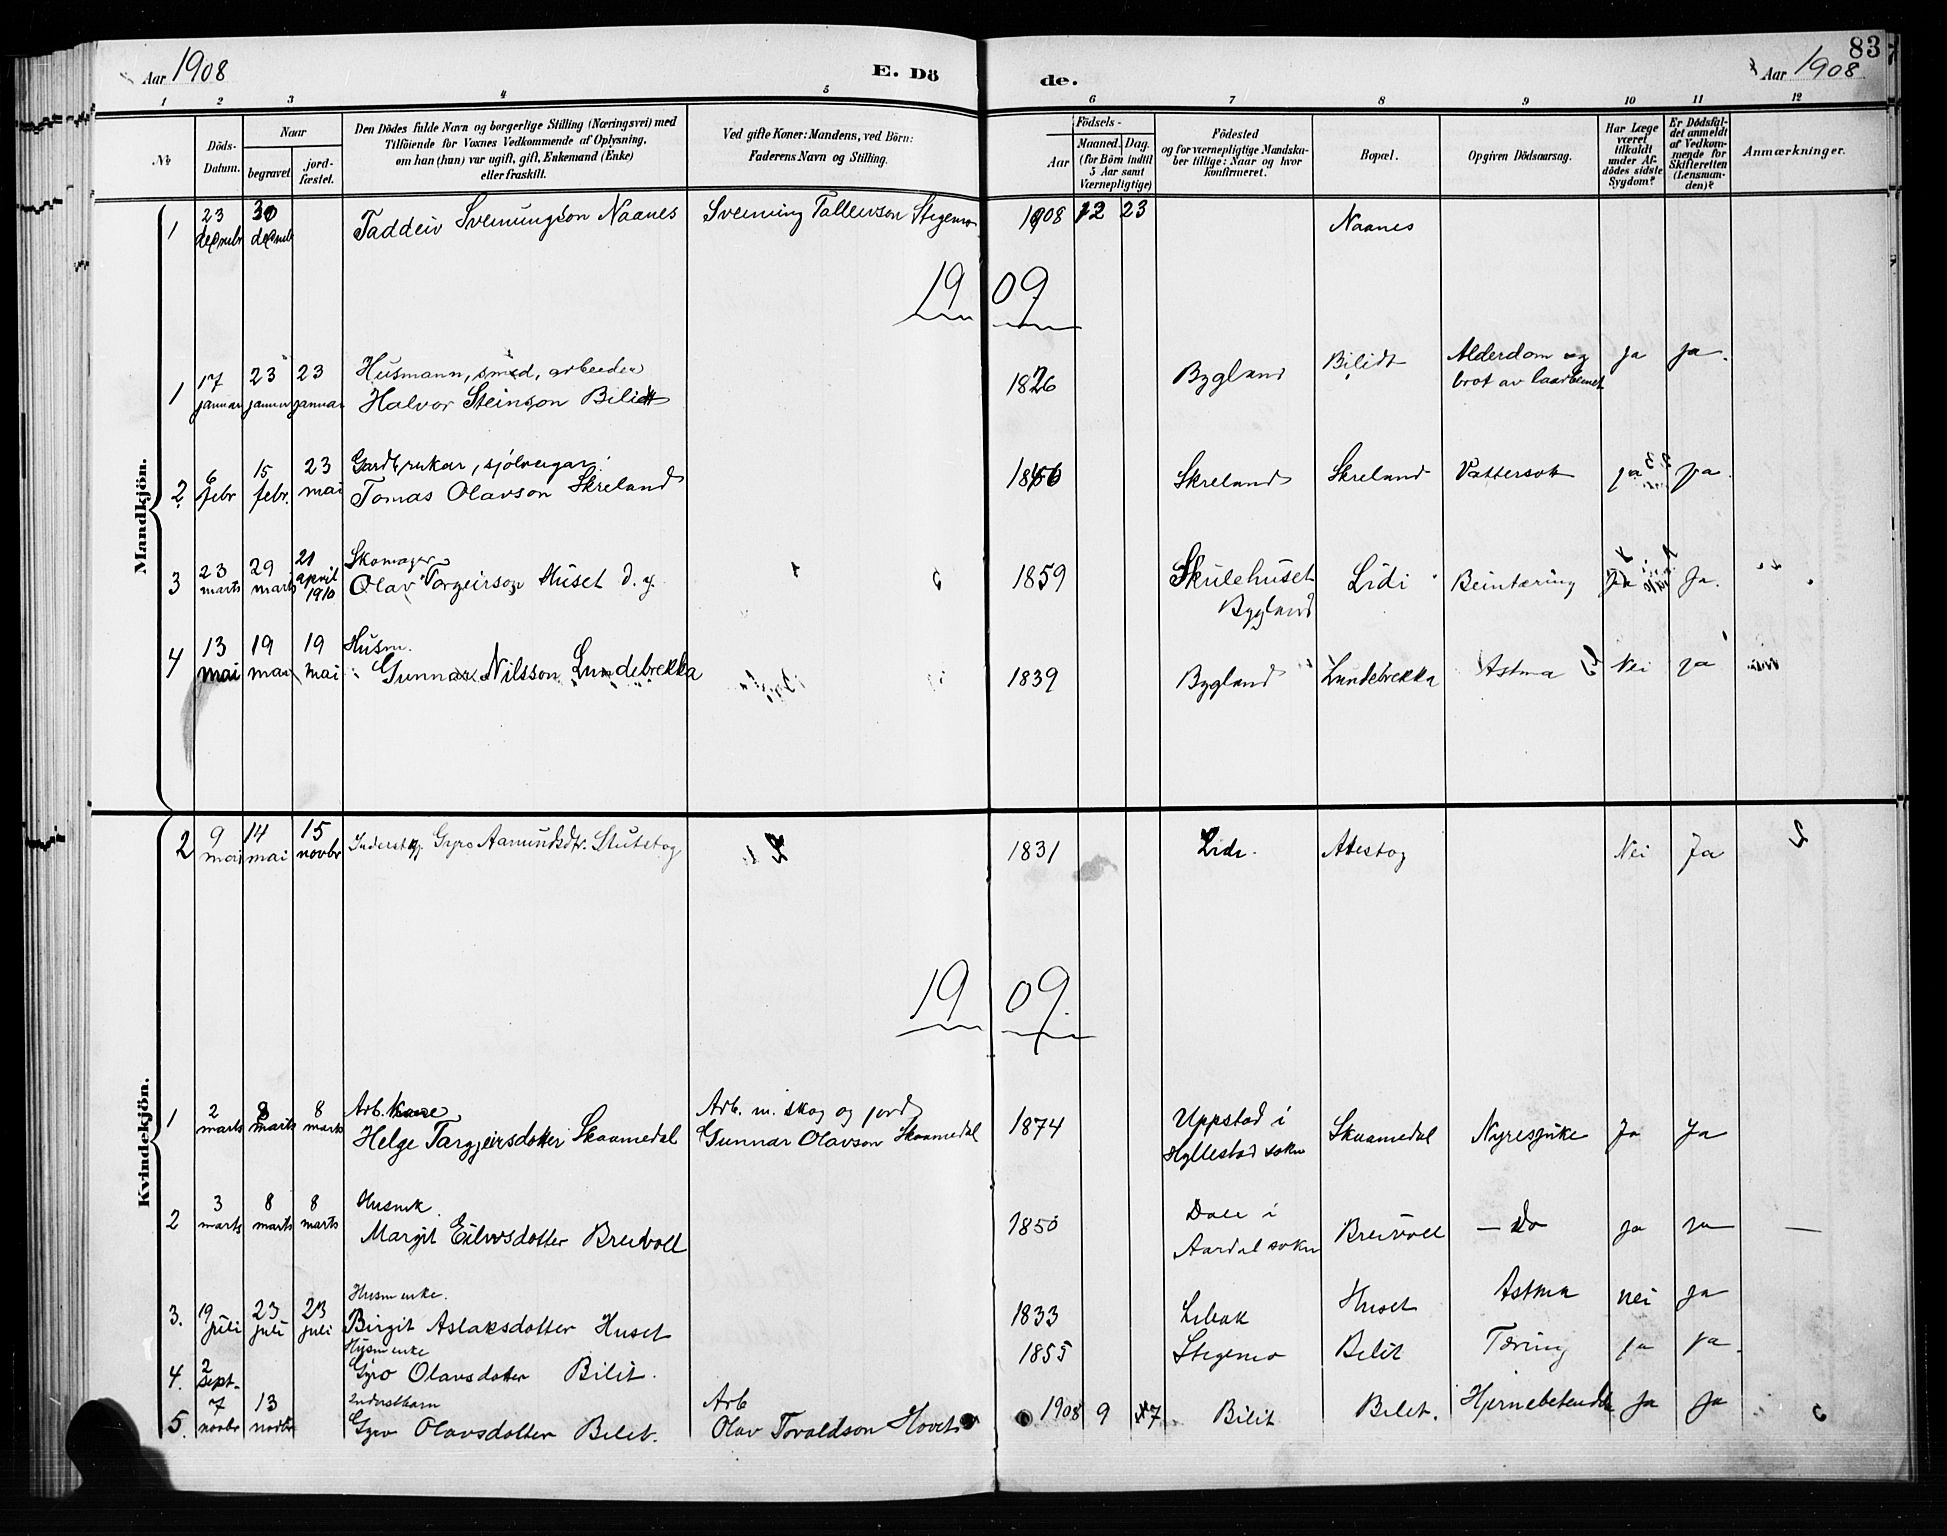 83
Aar 1908 E. Dö de. Aar 1908
1 2 3 4 5 6 7 8 9 10 11 12
No
Döds-Datum.
Naar
begravet.
jord-fæstet.
Den Dödes fulde Navn og borgerlige Stilling (Næringsvei) med
Tilföiende for Voxnes Vedkommende af Oplysning,
om han (hun) var ugift, gift, Enkemand (Enke)
eller fraskilt.
Ved gifte Koner: Mandens, ved Börn:
Faderens Navn og Stilling.
Födsels-
Aar
Maaned. Dag.
(for Börn indtil
5 Aar samt
Værnepligtige)
Födested
og for værnepligtige Mandsku-
ber tillige: Naar og hvor
konfirmeret.
Bopæl.
Opgiven Dödsaarsag.
Har Læge
været
tilkaldt
under Af-
dödes sidste
Sygdom?
Er Dödsfal-
det anmeldt
af Vedkom-
mende for
Skifteretten
(Lensman-
den)?
Anmærkninger.
Mandkjön.
1 23 decmbr 30 decmb Taddeiv Sveinungson Naanes Sveinung Tallevson Stegemo 1908 12 23 Naanes
1909
Husmann, smed, arbeider
1 17 januar 23 januar 23 januar Halvor Steinson Bilidt 1826 Bygland Bilidt Alderdom og brot av laarbenet ja ja.
Gardbrukar, sjölveigar
2 6 febr 15 febr. 23 mai Tomas Olavson Skreland Skreland Skreland Vattersott ja ja.
Skomager
3 23 marts 29 marts 21 april 1910 Olav Torgeirson Huset d. y. 1859 Skulehuset Bygland Lidi Beintæring Ja Ja.
Husm.
4 13 mai 19 mai 19 mai Gunnar Nilsson Lundebrekka 1839 Bygland Lundebrekka Astma Nei ja
Kvindekjön.
2 9 mai 14 mai 15 novbr Inderst Gyro Aamundsdtr. Stutstog 1831 Lidi. Nei Ja
1909
Arb. kone Arb. m. skog og jord
1 2 marts 8 marts 8 marts Helge Targjeirsdotter Skaamedal Gunnar Olavson Skaamedal 1874 Uppstad i Hyllestad sokn Skaamedal Nyresjuke Ja Ja
Husmk.
2 3 marts 8 marts 8 marts Margit Eilivsdotter Breivoll 1850 Dale i Aardal sokn Breivoll — Do ja ja —
Husm enke.
3. 19 juli 23 juli 23 juli Birgit Aslaksdotter Huset 1833 Libak Huset Astma nei ja
Husm enke
4. 2 sept- Gyro Olavsdotter Bilit. 1855 Stegemo Bilit Tæring ja ja.
Inderstbarn Arb
5. 7 novbr 13 novbr Gyro Olavsdotter Bilit. Olav Toraldson Hovet 1908 9 Bilit Bilit. Hjernebetendelse Ja Ja